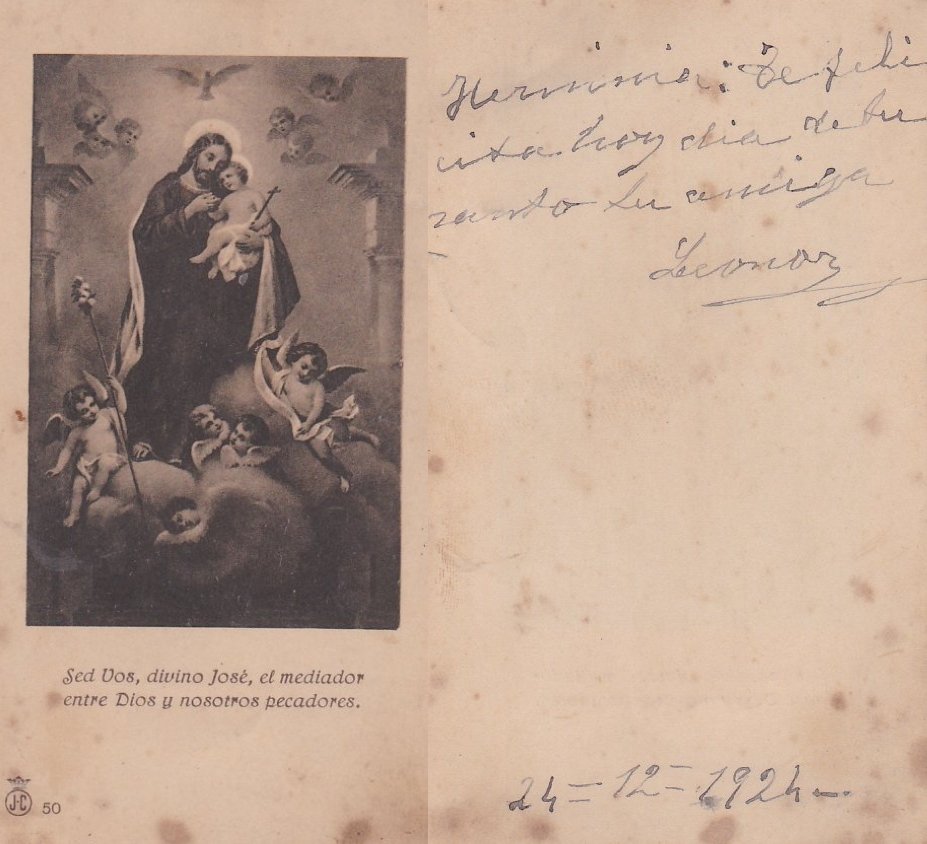 Sed Vos, divino José, el mediador
entre Dios y nosotros pecadores.
J-C 50
Herminia: Te feli
cita hoy dia de tu
santo tu amiga
Leonor
24=12=1924.-